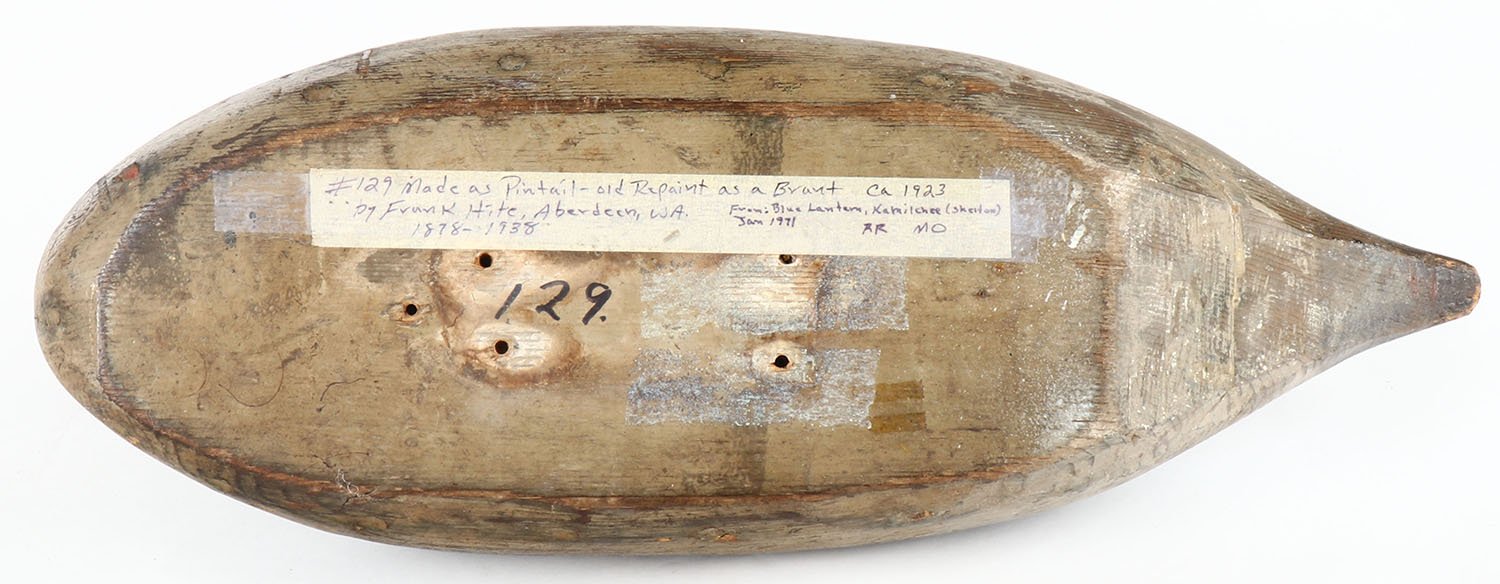 #129 Made as Pintail - old Repaint as a Brant ca 1923
by Frank Hite, Aberdeen, WA. From: Blue Lantern, Kamilchee (Shelton)
1878-1938 Jan 1971 RR MO
129.